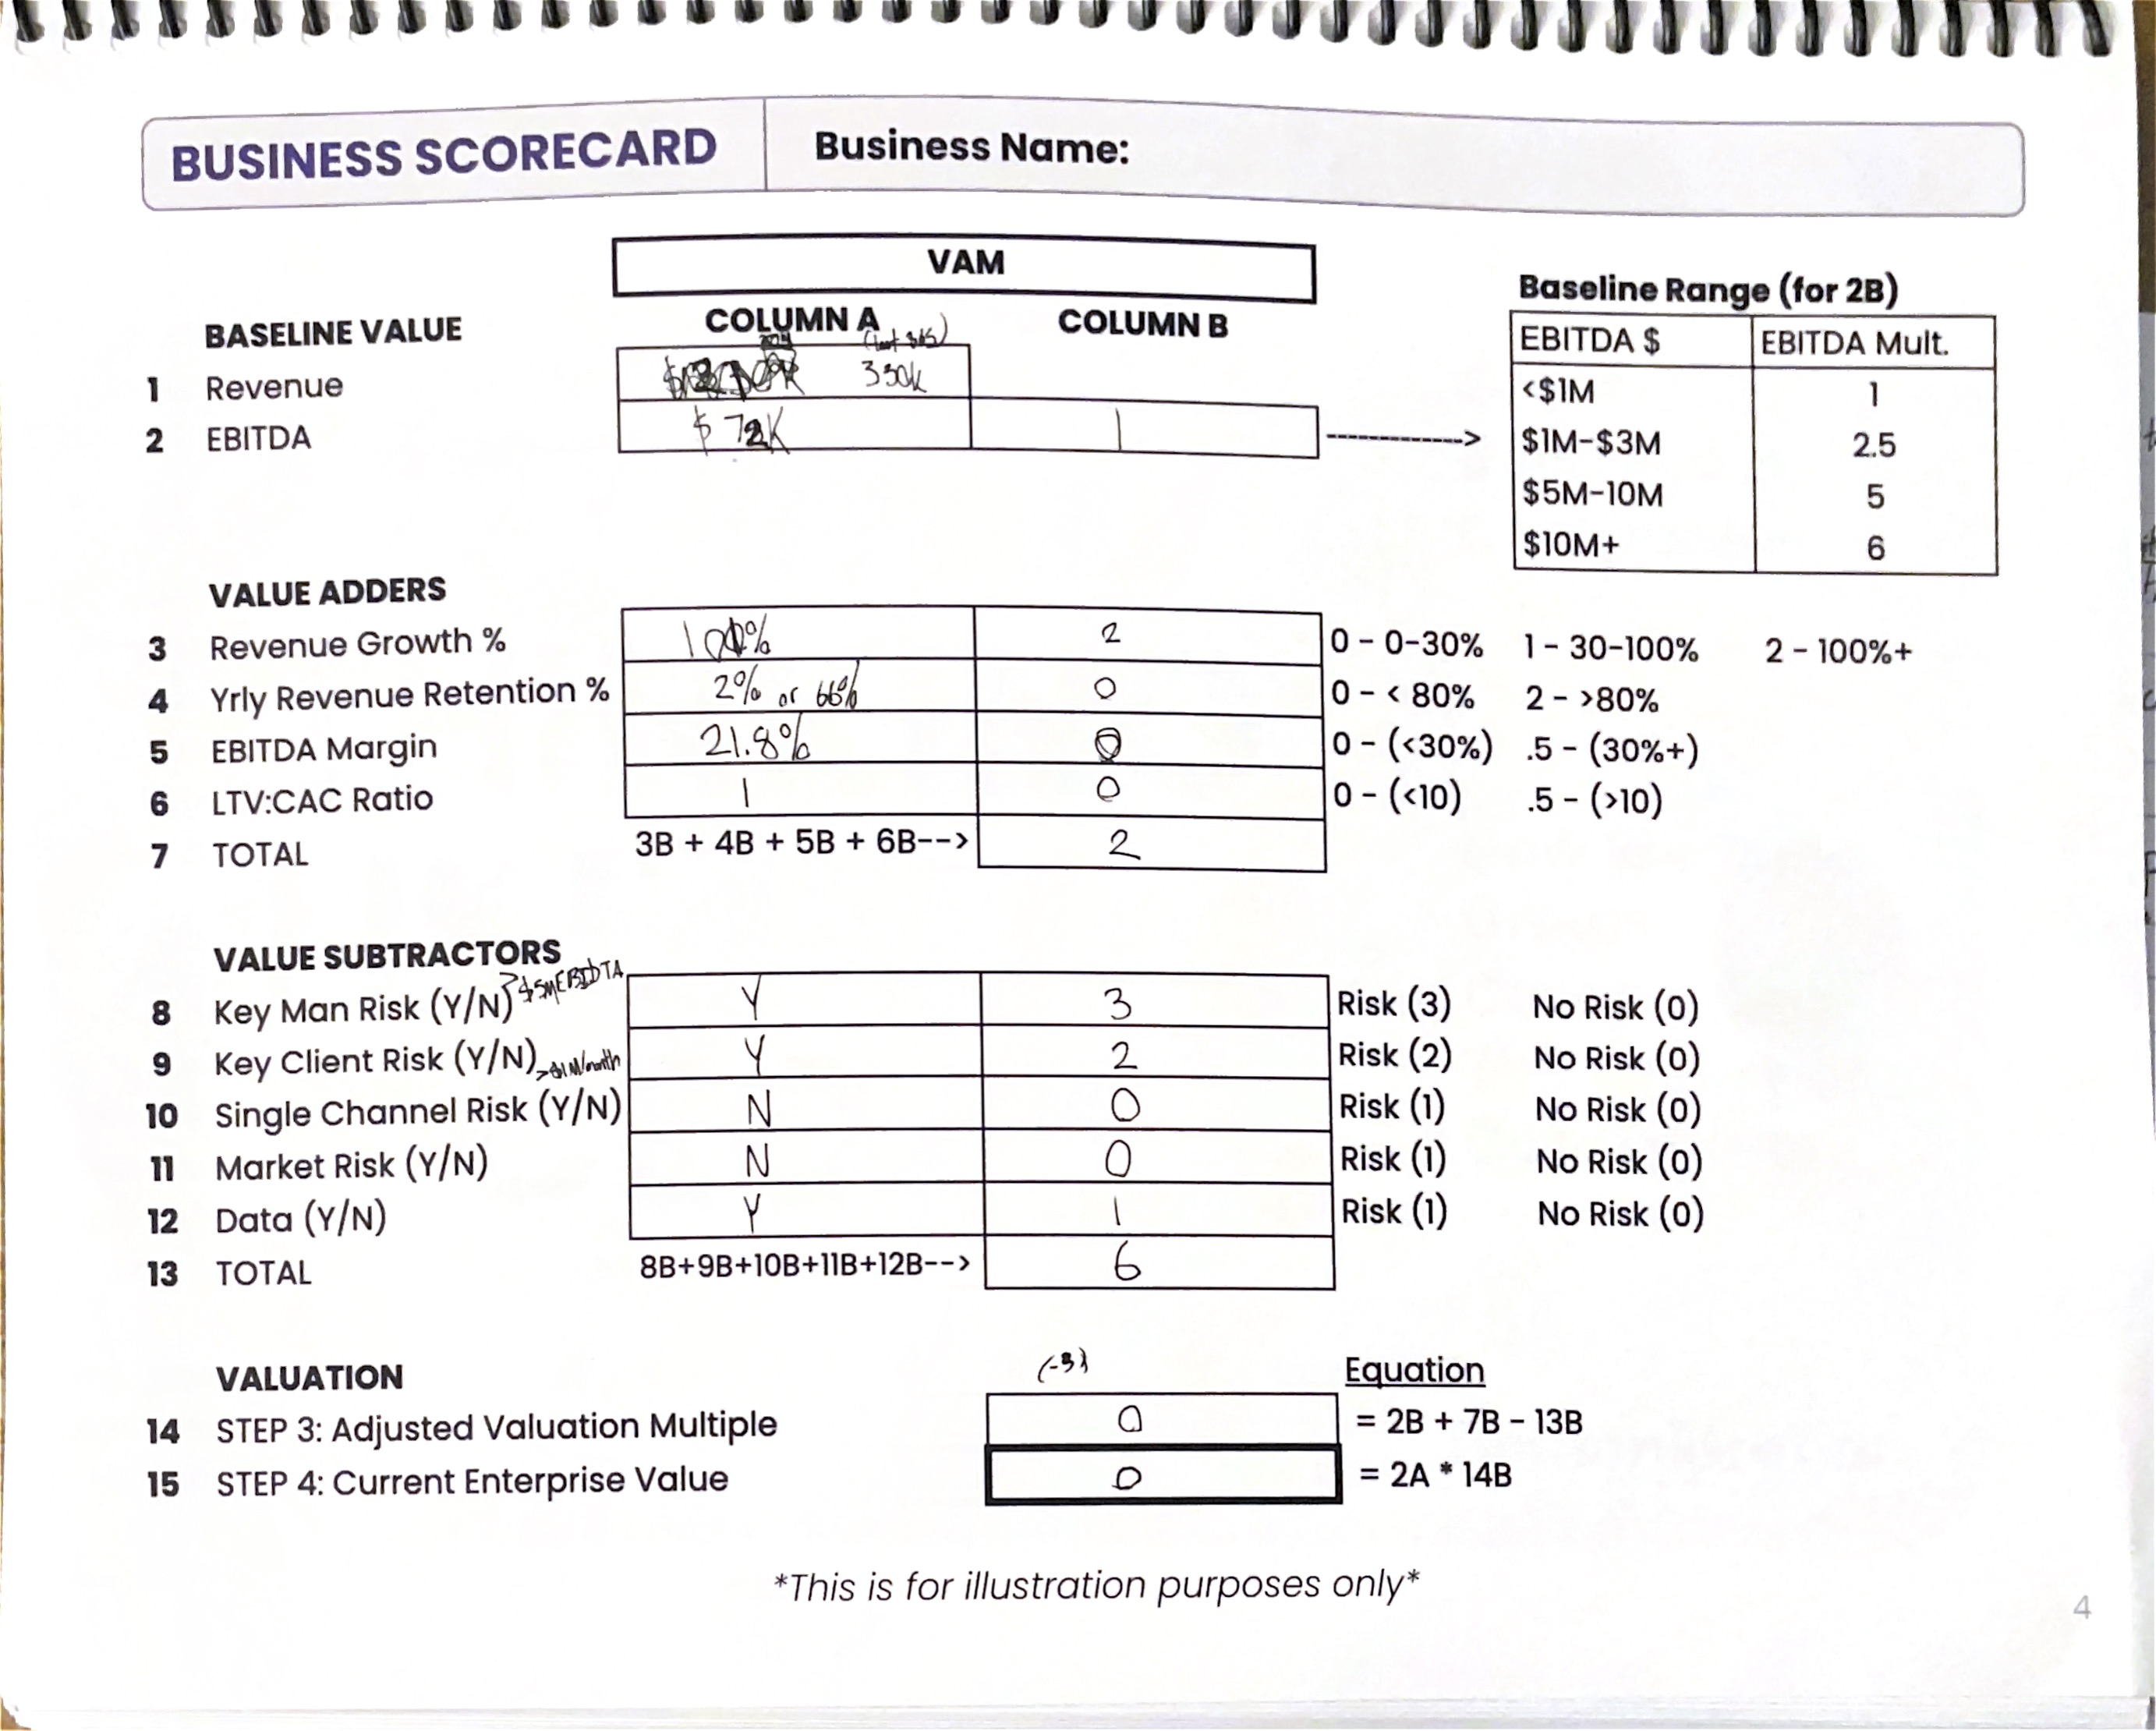 BUSINESS SCORECARD Business Name:
VAM
Baseline Range (for 2B)
BASELINE VALUE COLUMN A COLUMN B
EBITDA $ EBITDA Mult.
(last 365)
1 Revenue 330k
<$1M 1
2 EBITDA $72K 1 ------------->
$1M-$3M 2.5
$5M-10M 5
$10M+ 6
VALUE ADDERS
3 Revenue Growth % 100% 2 0 - 0-30% 1 - 30-100% 2 - 100%+
4 Yrly Revenue Retention % 2% or 66% 0 0 - < 80% 2 - >80%
5 EBITDA Margin 21.8% 0 0 - (<30%) .5 - (30%+)
6 LTV:CAC Ratio 1 0 0 - (<10) .5 - (>10)
7 TOTAL 3B + 4B + 5B + 6B--> 2
VALUE SUBTRACTORS
8 Key Man Risk (Y/N) >$5M EBIDTA Y 3 Risk (3) No Risk (0)
9 Key Client Risk (Y/N) >$1M/month Y 2 Risk (2) No Risk (0)
10 Single Channel Risk (Y/N) N 0 Risk (1) No Risk (0)
11 Market Risk (Y/N) N 0 Risk (1) No Risk (0)
12 Data (Y/N) Y 1 Risk (1) No Risk (0)
13 TOTAL 8B+9B+10B+11B+12B--> 6
VALUATION (-3) Equation
14 STEP 3: Adjusted Valuation Multiple 0 = 2B + 7B - 13B
15 STEP 4: Current Enterprise Value 0 = 2A * 14B
*This is for illustration purposes only*
4